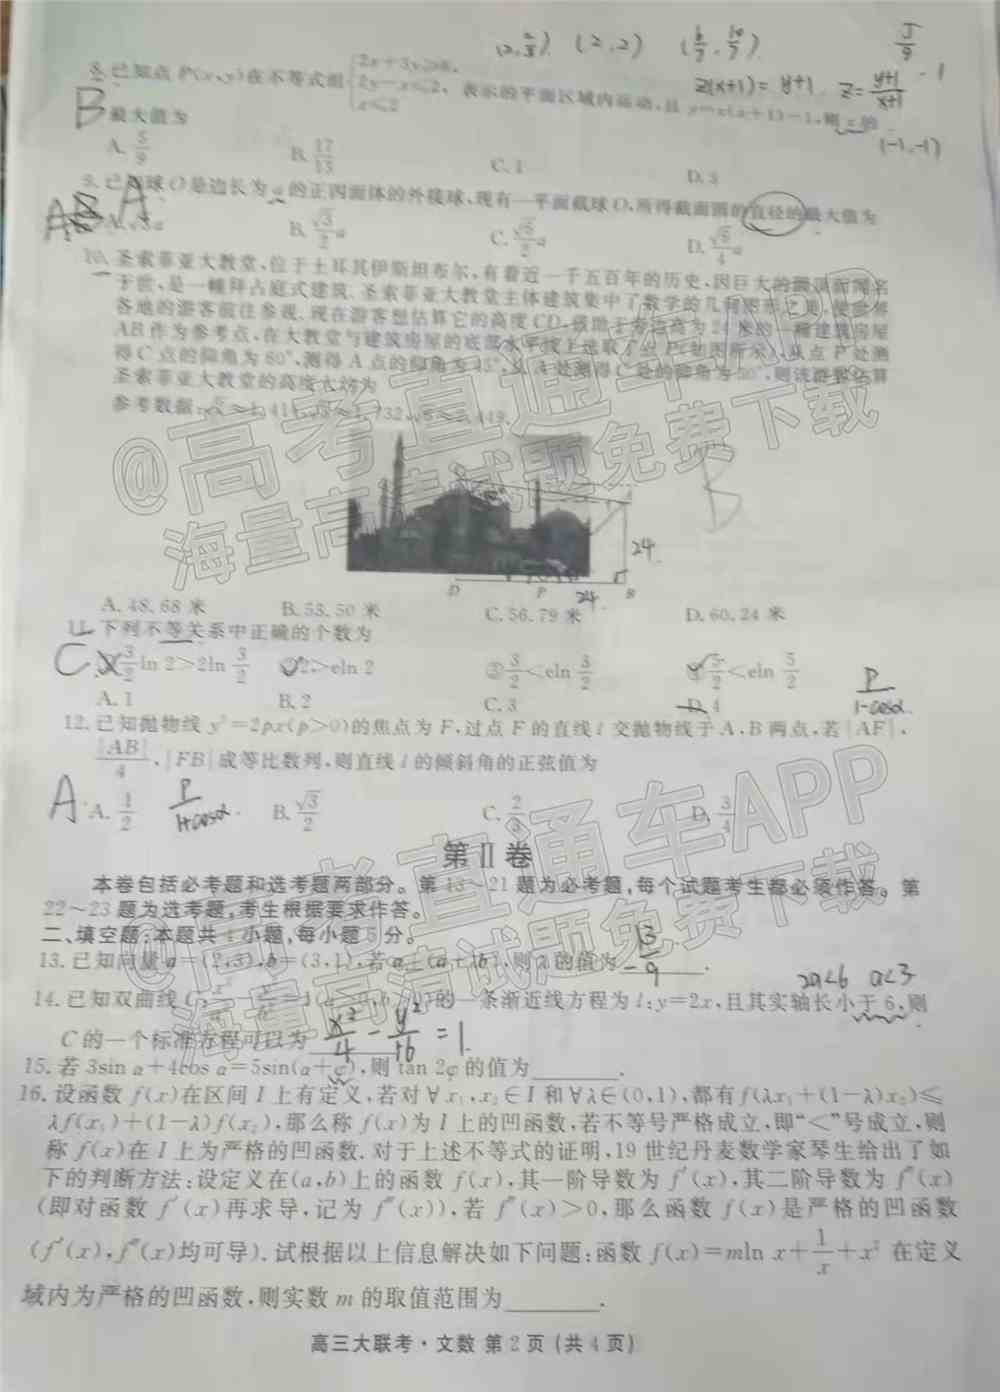 (2,2/3) (2,2) (6/7,10/7) J/9
z(x+1)=y+1 z=(y+1)/(x+1) -1
(-1,-1)
8.已知点P(x,y)在不等式组{2x+3y≥6, 2y-x≤2, x≤2 表示的平面区域内运动,且y=z(x+1)-1,则z的
B 最大值为
A.5/9 B.17/15 C.1 D.3
9.已知球O是边长为a的正四面体的外接球,现有一平面截球O,所得截面圆的直径的最大值为
A
A.√3a B.√3/2 a C.√6/2 a D.√6/4 a
10.圣索菲亚大教堂,位于土耳其伊斯坦布尔,有着近一千五百年的历史,因巨大的圆顶而闻名
于世,是一幢拜占庭式建筑.圣索菲亚大教堂主体建筑集中了数学的几何图形之美,使世界
各地的游客前往参观.现在游客想估算它的高度CD,借助于旁边高为24米的一幢建筑房屋
AB作为参考点,在大教堂与建筑房屋的底部水平线上选取了点P(如图所示),从点P处测
得C点的仰角为60°,测得A点的仰角为45°,从A处测得C处的仰角为30°,则该游客估算
圣索菲亚大教堂的高度大约为
参考数据:√2≈1.414,√3≈1.732,√6≈2.449.
B
24
D P B
24
A.48.68米 B.53.50米 C.56.79米 D.60.24米
11.下列不等关系中正确的个数为
C ①3/2 ln 2>2ln 3/2 ②2>eln 2 ③3/2<eln 3/2 ④5/2<eln 5/2
A.1 B.2 C.3 D.4
P/(1-cosα)
12.已知抛物线y²=2px(p>0)的焦点为F,过点F的直线l交抛物线于A,B两点,若|AF|,
|AB|/4,|FB|成等比数列,则直线l的倾斜角的正弦值为
A A.1/2 P/(1+cosα) B.√3/2 C.2/3 D.3/4
第Ⅱ卷
本卷包括必考题和选考题两部分。第13~21题为必考题,每个试题考生都必须作答。第
22~23题为选考题,考生根据要求作答。
二、填空题:本题共4小题,每小题5分。
13.已知向量a=(2,3),b=(3,1),若a⊥(a+λb),则λ的值为 -13/9 .
2a<6 a<3
14.已知双曲线C:x²/a²-y²/b²=1(a>0,b>0)的一条渐近线方程为l:y=2x,且其实轴长小于6,则
C的一个标准方程可以为 x²/4-y²/16=1.
15.若3sin α+4cos α=5sin(α+φ),则tan 2φ的值为 .
16.设函数f(x)在区间I上有定义,若对∀x₁,x₂∈I和∀λ∈(0,1),都有f(λx₁+(1-λ)x₂)≤
λf(x₁)+(1-λ)f(x₂),那么称f(x)为I上的凹函数,若不等号严格成立,即“<”号成立,则
称f(x)在I上为严格的凹函数.对于上述不等式的证明,19世纪丹麦数学家琴生给出了如
下的判断方法:设定义在(a,b)上的函数f(x),其一阶导数为f′(x),其二阶导数为f″(x)
(即对函数f′(x)再求导,记为f″(x)),若f″(x)>0,那么函数f(x)是严格的凹函数
(f′(x),f″(x)均可导).试根据以上信息解决如下问题:函数f(x)=mln x+1/x+x²在定义
域内为严格的凹函数,则实数m的取值范围为 .
高三大联考·文数 第2页(共4页)
@高考直通车APP
海量高清试题免费下载
@高考直通车APP
海量高清试题免费下载